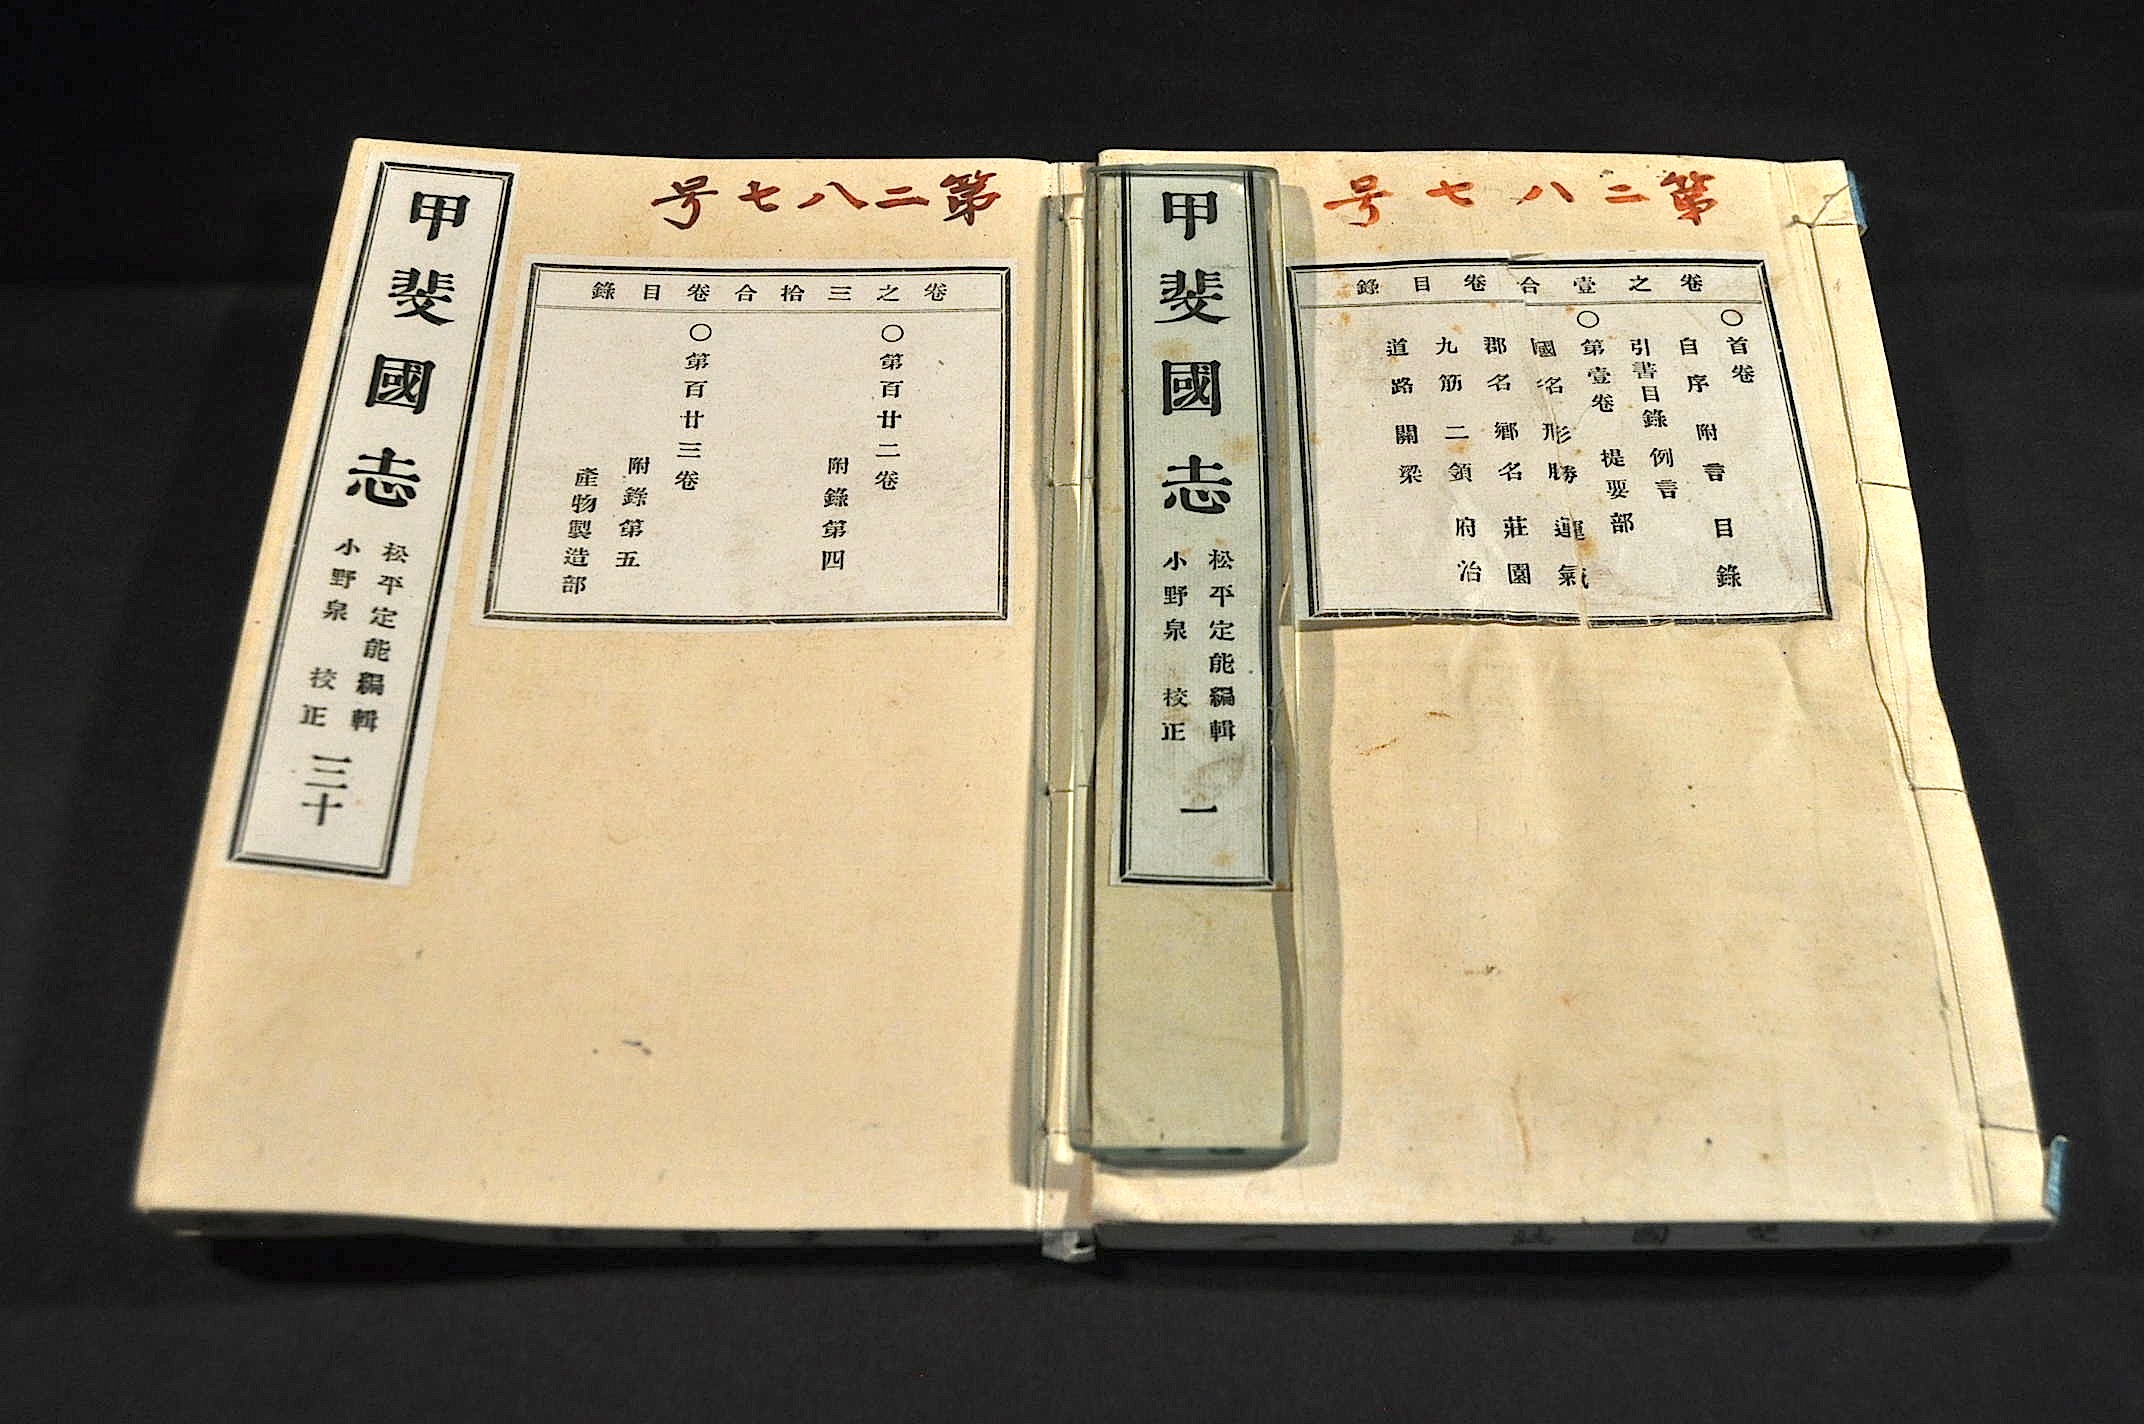 第二八七号
卷之壹合卷目錄
〇首卷
自序 附言 目錄
引書目錄 例言
〇第壹卷 提要部
國名 形勝 運氣
郡名 鄉名 莊園
九筋二領 府治
道路關梁
甲斐國志
松平定能編輯
小野泉 校正
一
第二八七号
卷之三拾合卷目錄
〇第百廿二卷
附錄第四
〇第百廿三卷
附錄第五
產物製造部
甲斐國志
松平定能編輯
小野泉 校正
三十